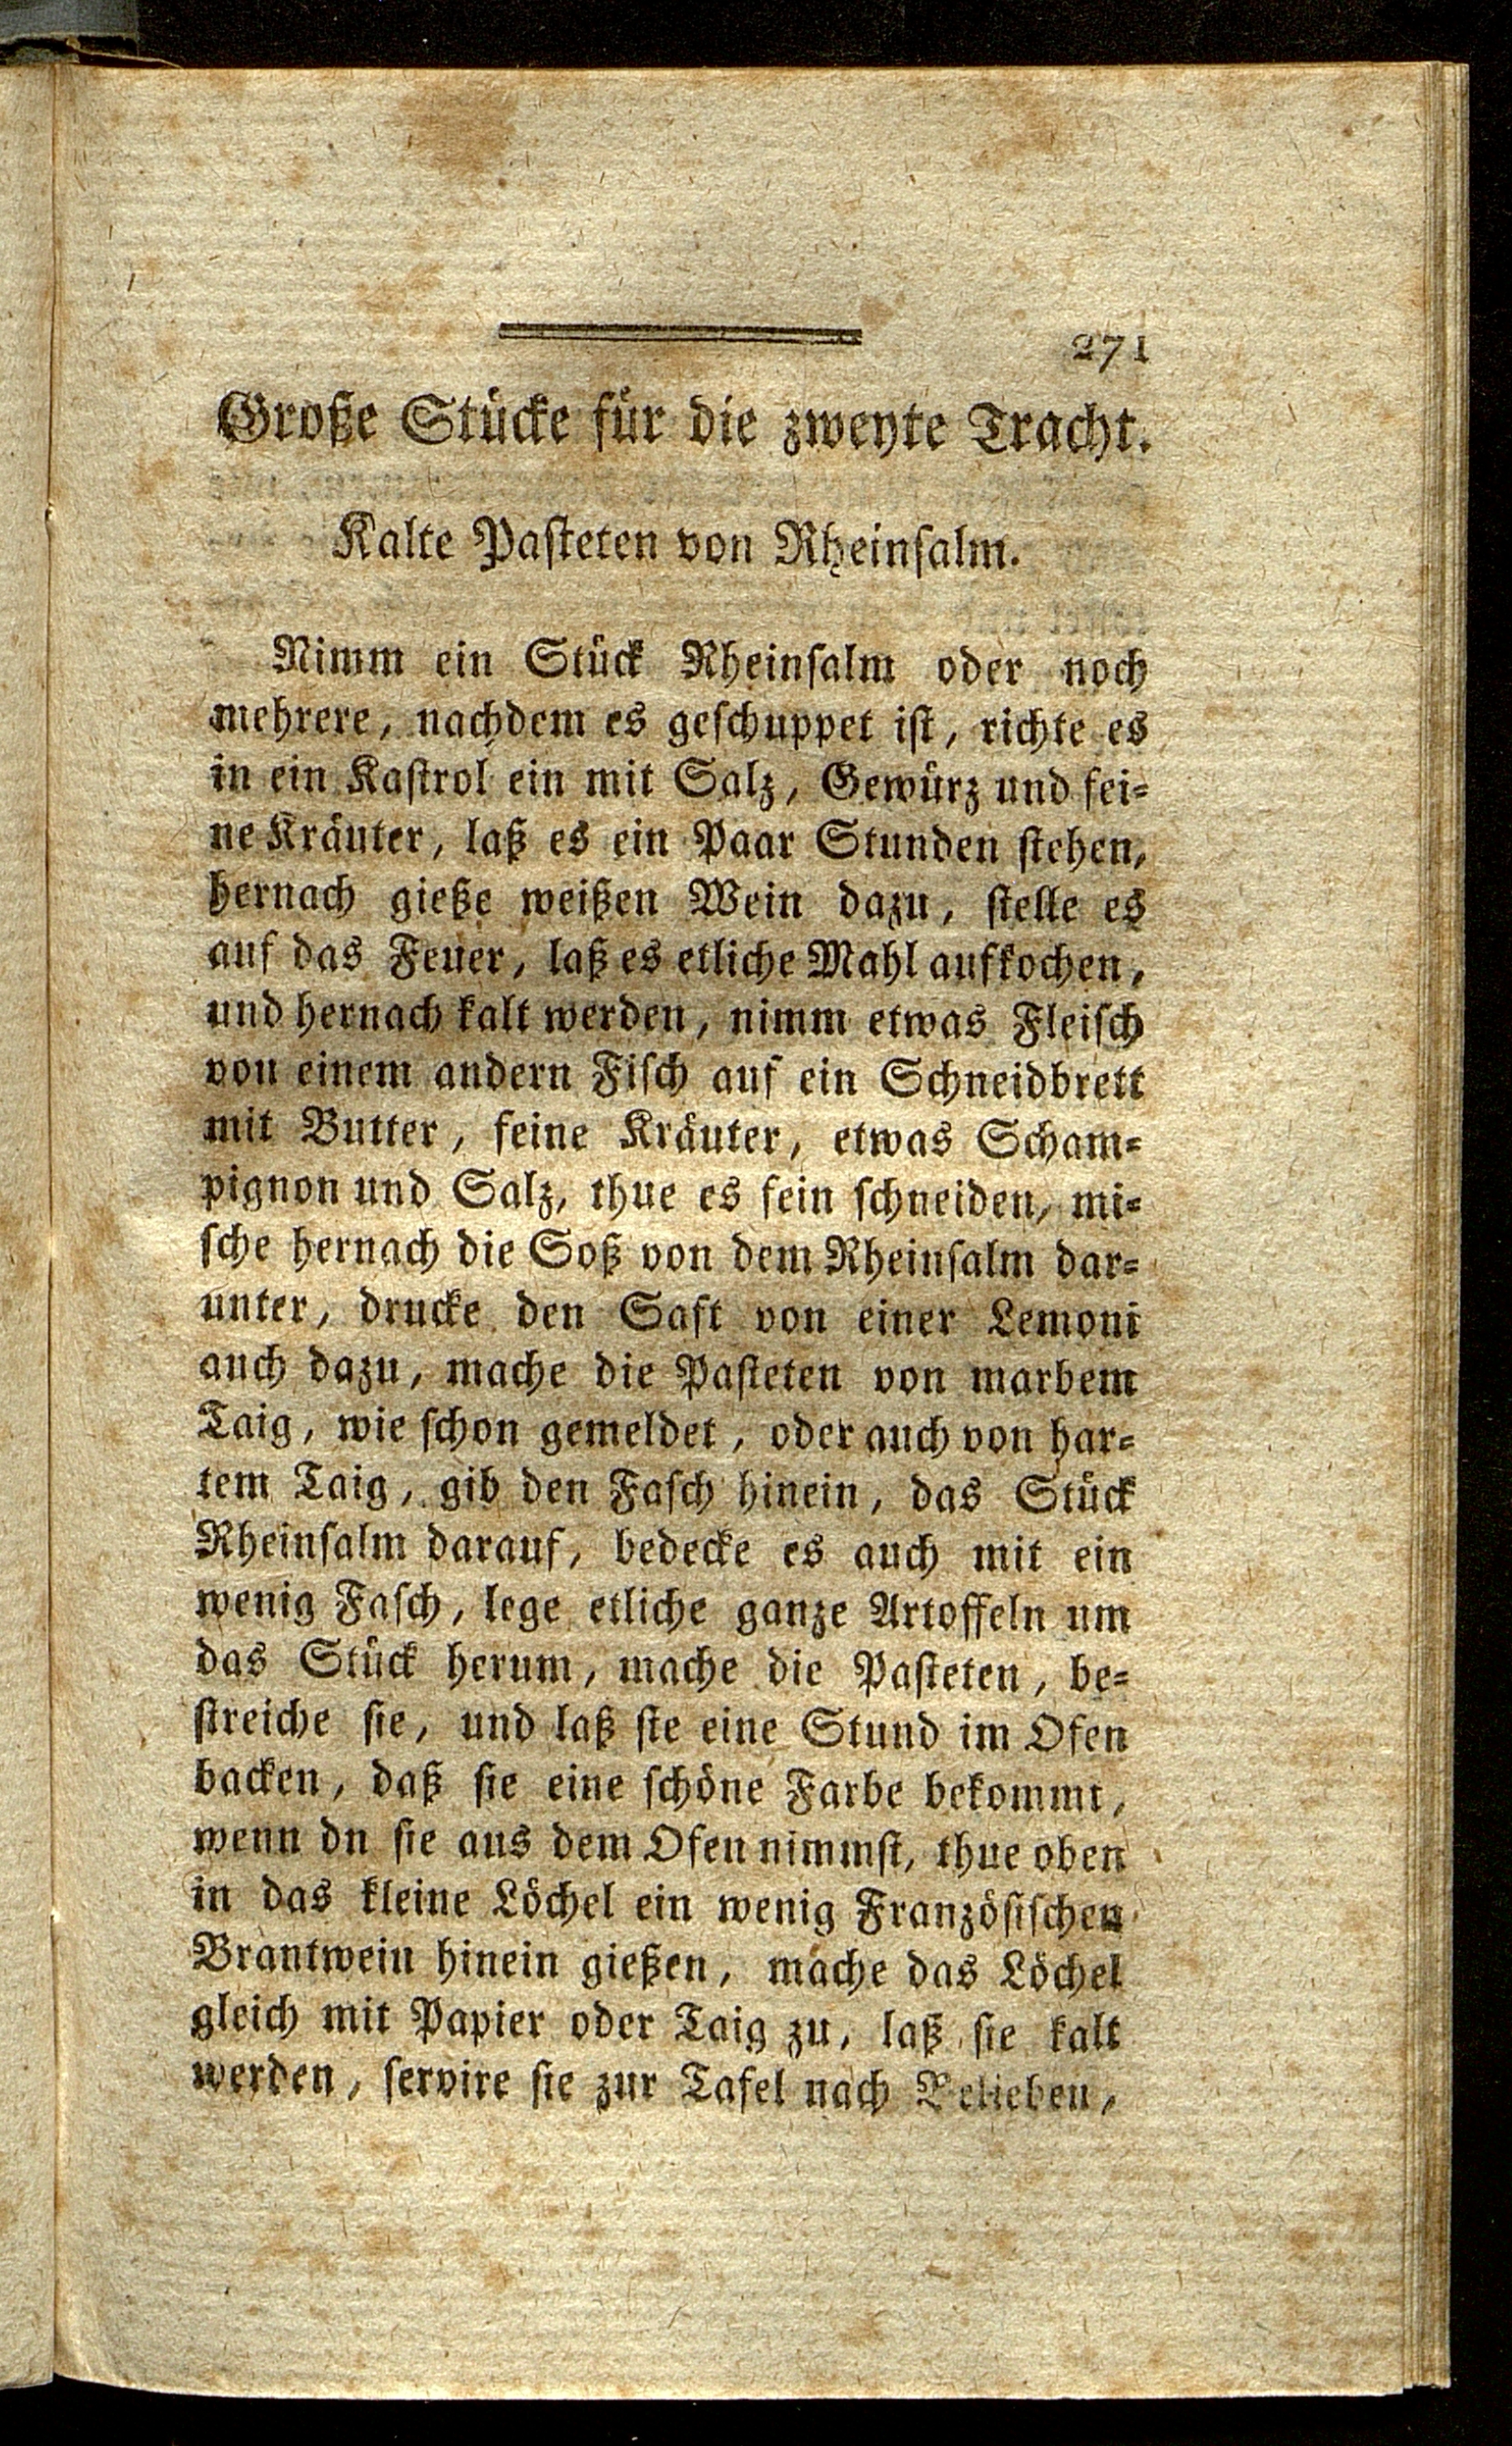 271
Große Stücke für die zweyte Tracht.
Kalte Pasteten von Rheinsalm.
Nimm ein Stück Rheinsalm oder noch
mehrere, nachdem es geschuppet ist, richte es
in ein Kastrol ein mit Salz, Gewürz und fei=
ne Kräuter, laß es ein Paar Stunden stehen,
hernach gieße weißen Wein dazu, stelle es
auf das Feuer, laß es etliche Mahl aufkochen,
und hernach kalt werden, nimm etwas Fleisch
von einem andern Fisch auf ein Schneidbrett
mit Butter, feine Kräuter, etwas Scham=
pignon und Salz, thue es fein schneiden, mi=
sche hernach die Soß von dem Rheinsalm dar=
unter, drucke den Saft von einer Lemoni
auch dazu, mache die Pasteten von marbem
Taig, wie schon gemeldet, oder auch von har=
tem Taig, gib den Fasch hinein, das Stück
Rheinsalm darauf, bedecke es auch mit ein
wenig Fasch, lege etliche ganze Artoffeln um
das Stück herum, mache die Pasteten, be=
streiche sie, und laß sie eine Stund im Ofen
backen, daß sie eine schöne Farbe bekommt,
wenn dn sie aus dem Ofen nimmst, thue oben
in das kleine Löchel ein wenig Französischen
Brantwein hinein gießen, mache das Löchel
gleich mit Papier oder Taig zu, laß sie kalt
werden, servire sie zur Tafel nach Belieben,